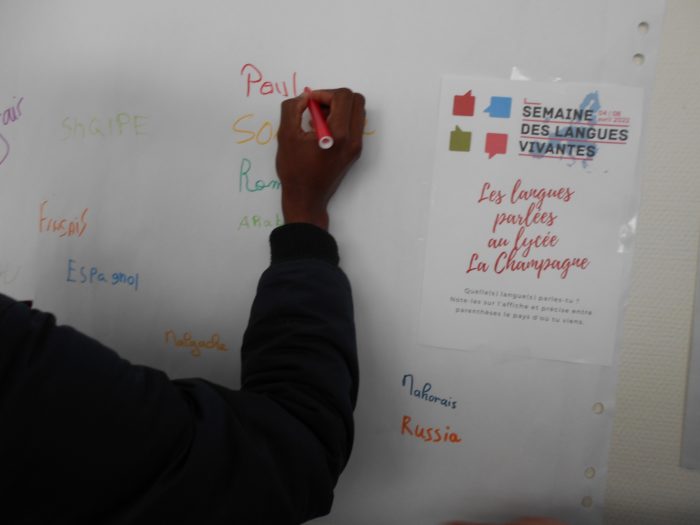 SHQIPE
Poul
So
Rom
ARab
Espagnol
Malgache
Mahorais
Russia
SEMAINE
DES LANGUES
VIVANTES
04 | 08
avril 2022
Les langues
parlées
au lycée
La Champagne
Quelle(s) langue(s) parles-tu ?
Note-les sur l'affiche et précise entre
parenthèses le pays d'où tu viens.